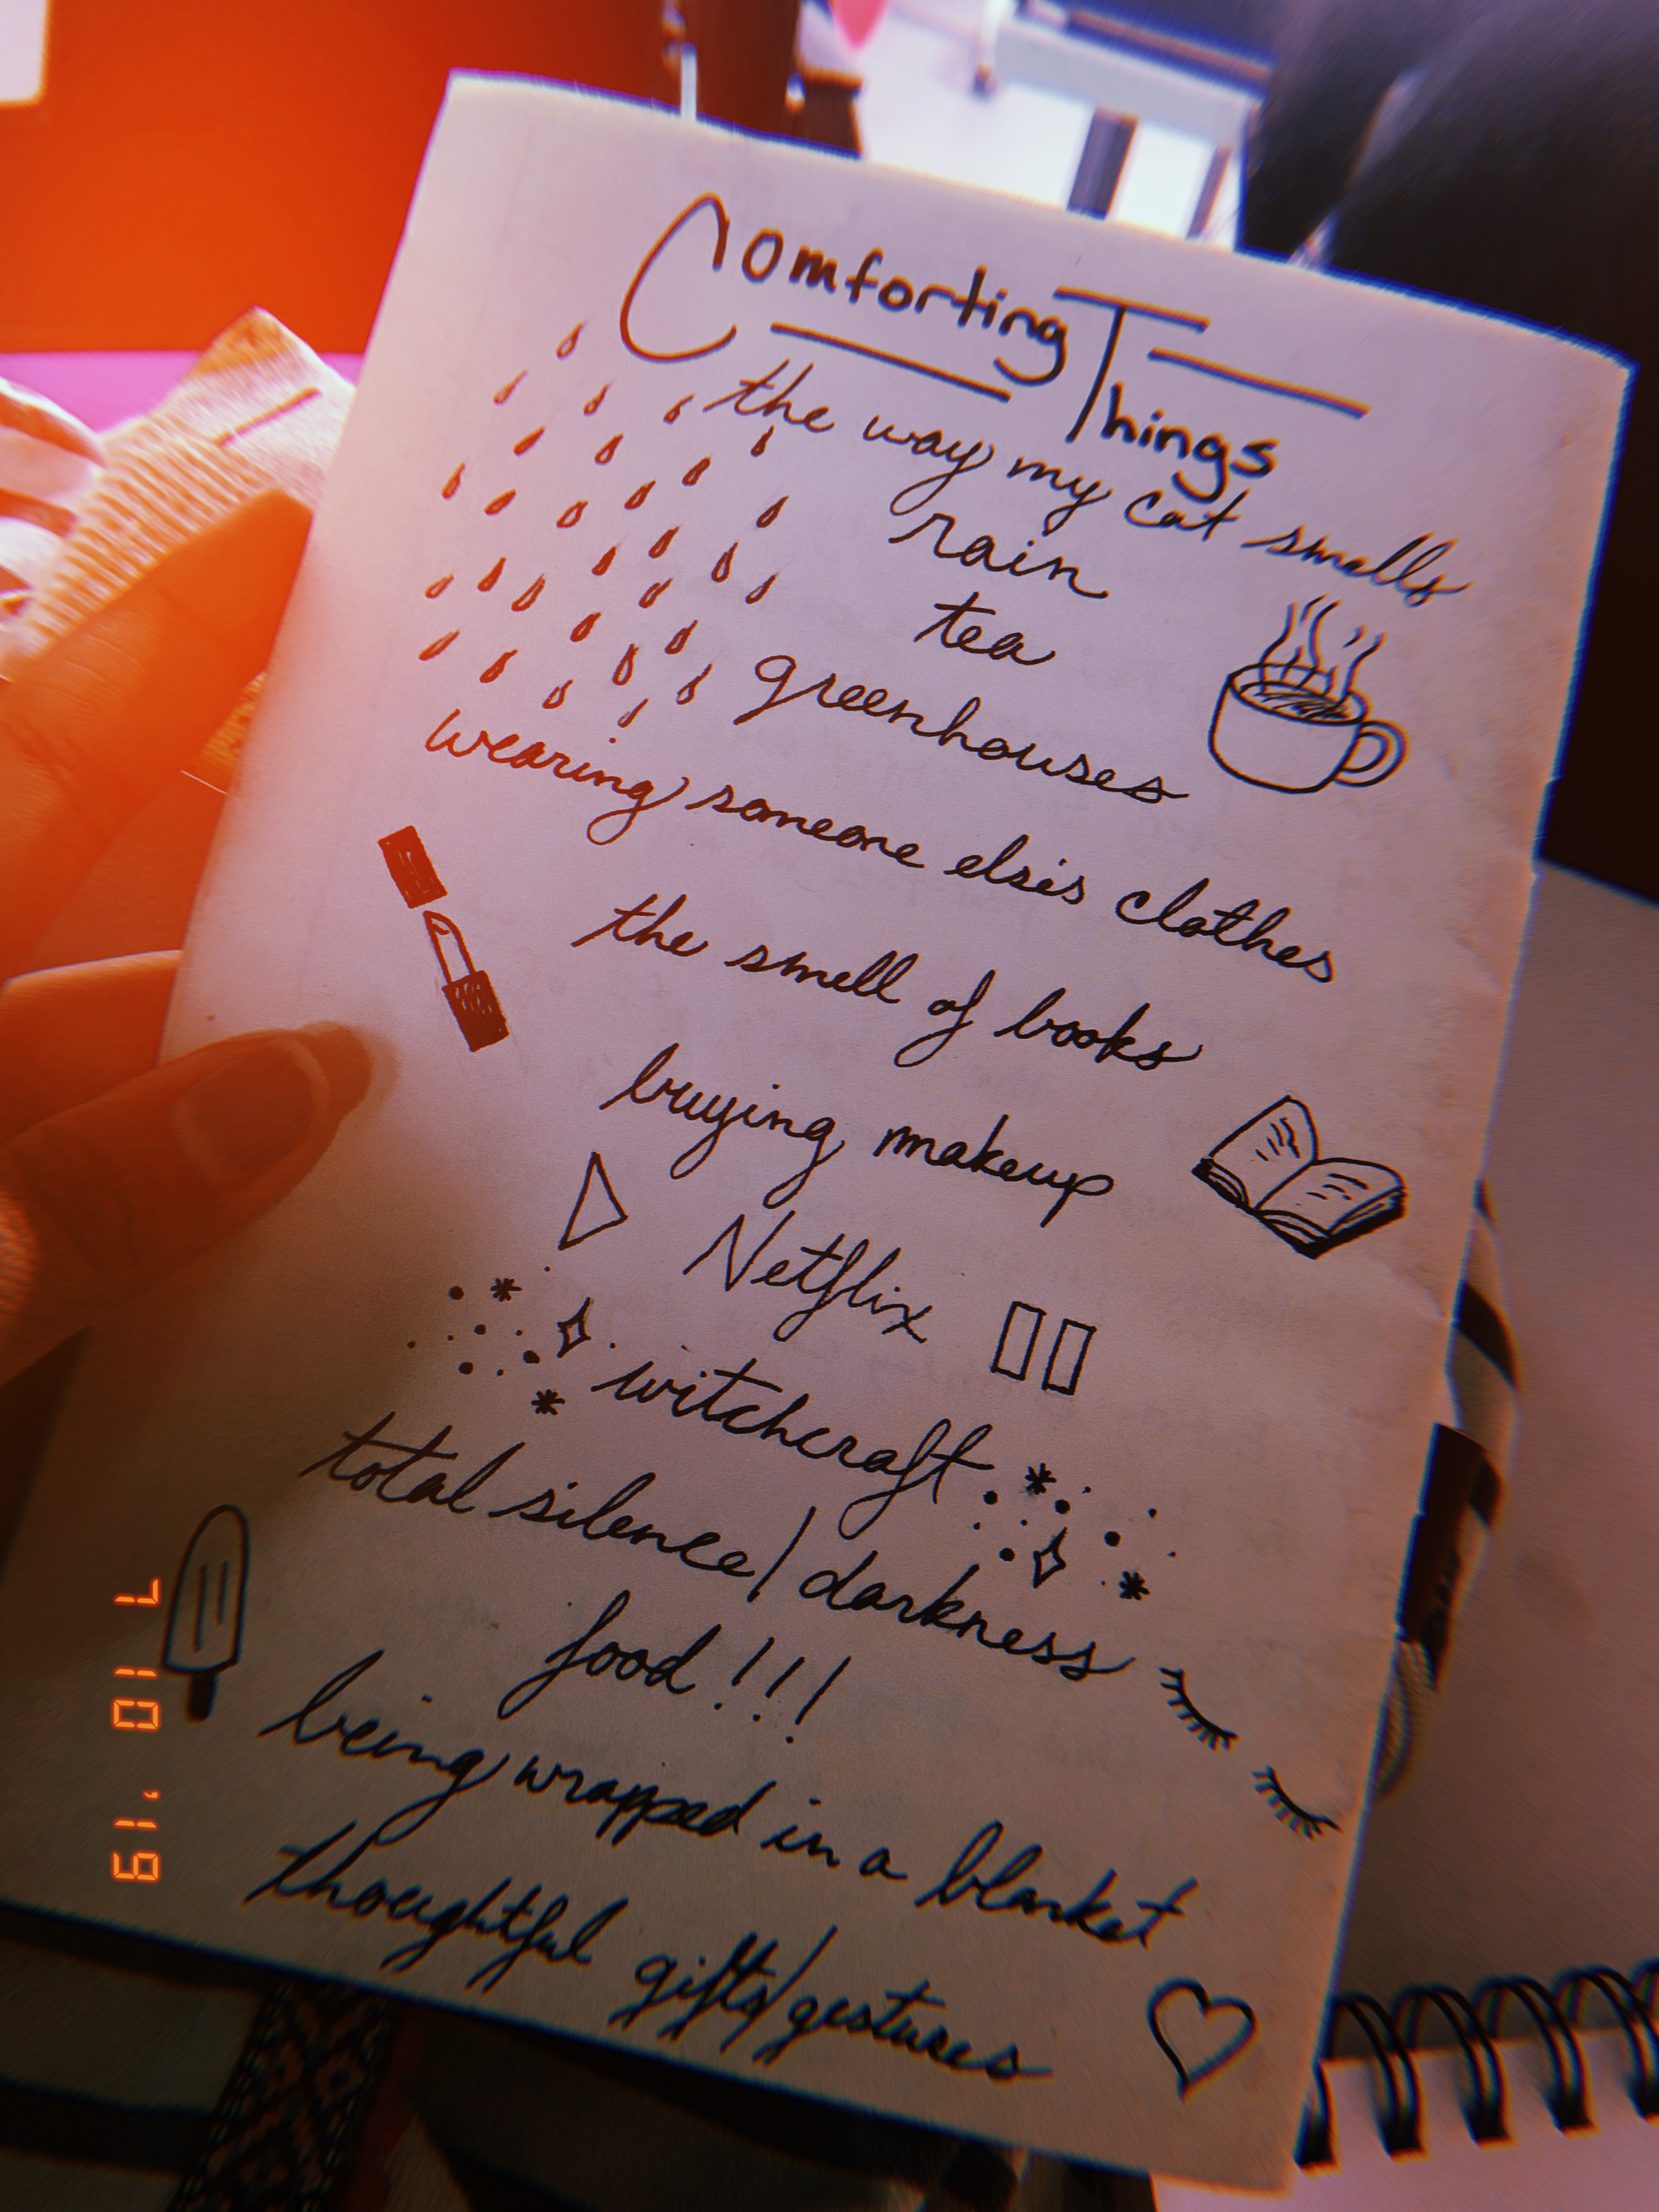 Comforting Things
the way my cat smells
rain
tea
greenhouses
wearing someone else's clothes
the smell of books
buying makeup
Netflix
witchcraft
total silence/darkness
food!!!
being wrapped in a blanket
thoughtful gifts/gestures
7 10 '19